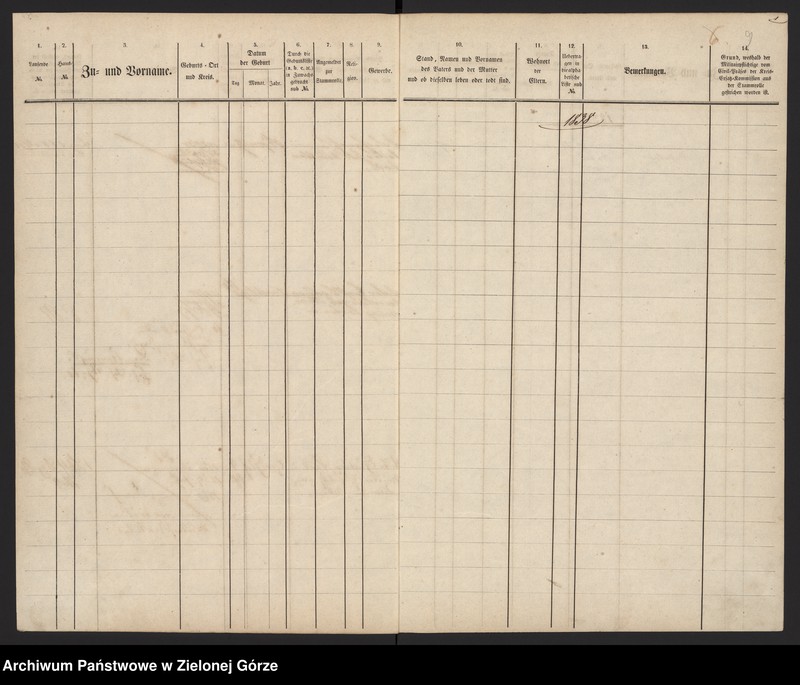 1.
Laufende
№.
2.
Haus-
№.
3.
Zu- und Vorname.
4.
Geburts-Ort
und Kreis.
5.
Datum
der Geburt
Tag
Monat.
Jahr.
6.
Durch die
Geburtsliste
gebracht
sub №.
7.
Angemeldet
zur
Stammrolle.
8.
Reli-
gion.
9.
Gewerbe.
10.
Stand, Namen und Vornamen
des Vaters und der Mutter
und ob dieselben leben oder todt sind.
11.
Wohnort
der
Eltern.
12.
Uebertra-
gen in
die alpha-
betische
Liste sub
№.
13.
Bemerkungen.
14.
Grund, weshalb der
Militairpflichtige von dem
Civil-Präses der Kreis-
Ersatz-Kommission aus
der Stammrolle
gestrichen worden ist.
1838
Archiwum Państwowe w Zielonej Górze